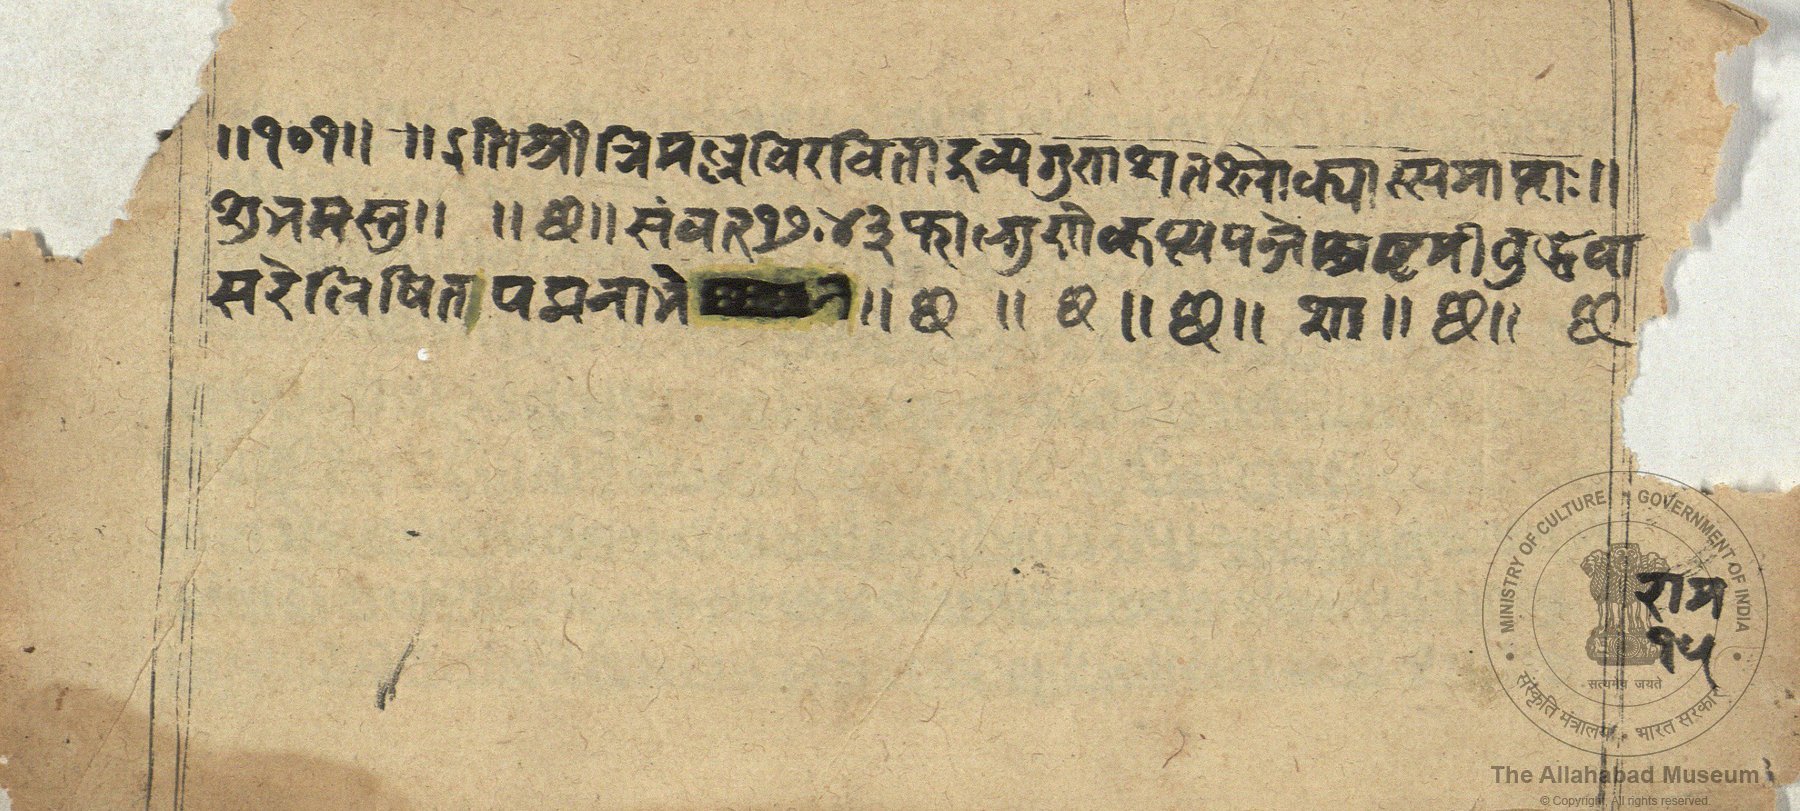 ॥१०१॥ ॥इति श्रीत्रिमल्लविरचिता द्रव्यगुणाशतश्लोक्या स्समाप्ताः॥
शुभमस्तु॥ ॥छ॥ संवत् १७४३ फाल्गुणे कृष्णपक्षे अष्टमी बुद्धवा
सरे लिषितं पद्मनाभे ॥ छ ॥ छ ॥ छ॥ श्री॥ छ॥ छ
राम
१५
MINISTRY OF CULTURE GOVERNMENT OF INDIA
सत्यमेव जयते
संस्कृति मंत्रालय भारत सरकार
The Allahabad Museum
© Copyright. All rights reserved.